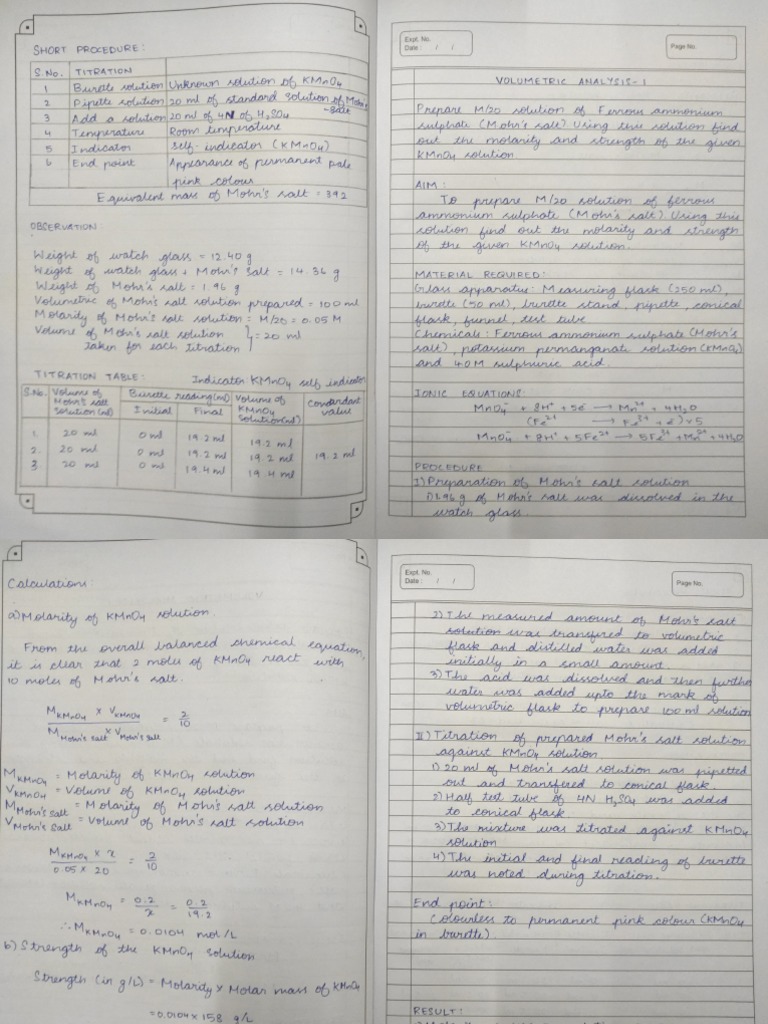 SHORT PROCEDURE:
S.No. TITRATION
1 Burette solution Unknown solution of KMnO4
2 Pipette solution 20 ml of standard solution of Mohr's salt
3 Add a solution 20 ml of 4N of H2SO4
4 Temperature Room temperature
5 Indicator self-indicator (KMnO4)
6 End point Appearance of permanent pale
pink colour
Equivalent mass of Mohr's salt = 392
OBSERVATION
Weight of watch glass = 12.40 g
Weight of watch glass + Mohr's salt = 14.36 g
Weight of Mohr's salt = 1.96 g
Volumetric of Mohr's salt solution prepared = 100 ml
Molarity of Mohr's salt solution = M/20 = 0.05 M
Volume of Mohr's salt solution
taken for each titration } = 20 ml
TITRATION TABLE: Indicator KMnO4 self indicator
S.No. Volume of Mohr's salt solution (ml) Burette reading (ml) Volume of KMnO4 solution (ml) Concordant value
Initial Final
1. 20 ml 0 ml 19.2 ml 19.2 ml
2. 20 ml 0 ml 19.2 ml 19.2 ml 19.2 ml
3. 20 ml 0 ml 19.4 ml 19.4 ml
Expt. No.
Date : / /
Page No.
VOLUMETRIC ANALYSIS-1
Prepare M/20 solution of Ferrous ammonium
sulphate (Mohr's salt). Using this solution find
out the molarity and strength of the given
KMnO4 solution
AIM:
To prepare M/20 solution of ferrous
ammonium sulphate (Mohr's salt). Using this
solution find out the molarity and strength
of the given KMnO4 solution.
MATERIAL REQUIRED:
Glass apparatus: Measuring flask (250 ml),
burette (50 ml), burette stand, pipette, conical
flask, funnel, test tube
Chemicals: Ferrous ammonium sulphate (Mohr's
salt), potassium permanganate solution (KMnO4)
and 40M sulphuric acid.
IONIC EQUATIONS:
MnO4⁻ + 8H⁺ + 5e⁻ → Mn²⁺ + 4H2O
(Fe²⁺ → Fe³⁺ + e⁻) × 5
MnO4⁻ + 8H⁺ + 5Fe²⁺ → 5Fe³⁺ + Mn²⁺ + 4H2O
PROCEDURE
I) Preparation of Mohr's salt solution
1) 1.96 g of Mohr's salt was dissolved in the
watch glass.
Calculations:
a) Molarity of KMnO4 solution.
From the overall balanced chemical equation,
it is clear that 2 moles of KMnO4 react with
10 moles of Mohr's salt.
MKMnO4 × VKMnO4 / MMohr's salt × VMohr's salt = 2/10
MKMnO4 = Molarity of KMnO4 solution
VKMnO4 = Volume of KMnO4 solution
MMohr's salt = Molarity of Mohr's salt solution
VMohr's salt = Volume of Mohr's salt solution
MKMnO4 × x / 0.05 × 20 = 2/10
MKMnO4 = 0.2/x = 0.2/19.2
∴ MKMnO4 = 0.0104 mol/L
b) Strength of the KMnO4 solution
Strength (in g/L) = Molarity × Molar mass of KMnO4
= 0.0104 × 158 g/L
Expt. No.
Date : / /
Page No.
2) The measured amount of Mohr's salt
solution was transfered to volumetric
flask and distilled water was added
initially in a small amount.
3) The acid was dissolved and then further
water was added upto the mark of
volumetric flask to prepare 100 ml solution
II) Titration of prepared Mohr's salt solution
against KMnO4 solution.
1) 20 ml of Mohr's salt solution was pipetted
out and transfered to conical flask.
2) Half test tube of 4N H2SO4 was added
to conical flask
3) The mixture was titrated against KMnO4
solution
4) The initial and final reading of burette
was noted during titration.
End point:
Colourless to permanent pink colour (KMnO4
in burette).
RESULT: